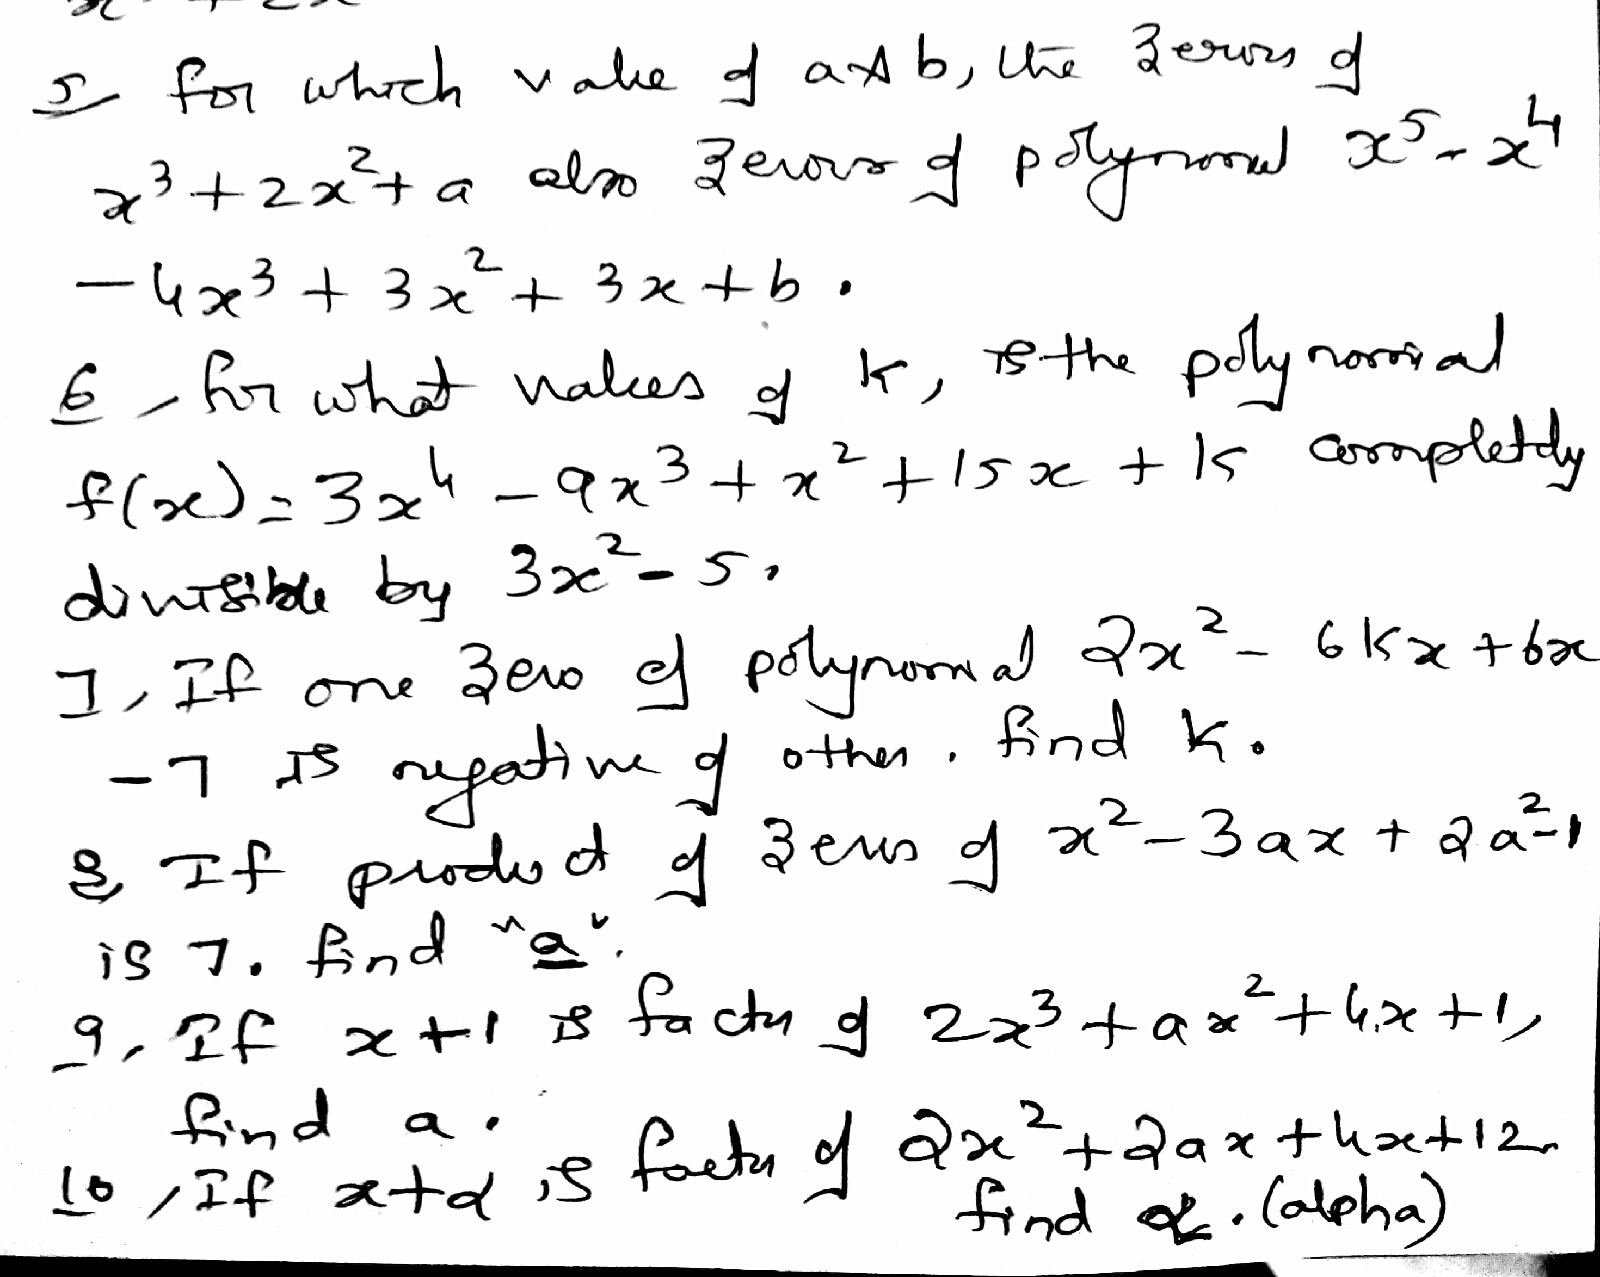 5 for which value of a & b, the zeros of
x³ + 2x² + a also zeros of polynomial x⁵ - x⁴
- 4x³ + 3x² + 3x + b .
6, for what values of k, is the polynomial
f(x) = 3x⁴ - 9x³ + x² + 15x + k completely
divisible by 3x² - 5.
7, If one zero of polynomial 2x² - 6kx + 6x
- 7 is negative of other. find k.
8, If product of zeros of x² - 3ax + 2a² - 1
is 7. find "a".
9, If x + 1 is factor of 2x³ + ax² + 4x + 1,
find a.
10, If x + α is factor of 2x² + 2ax + 4x + 12
find α. (alpha)